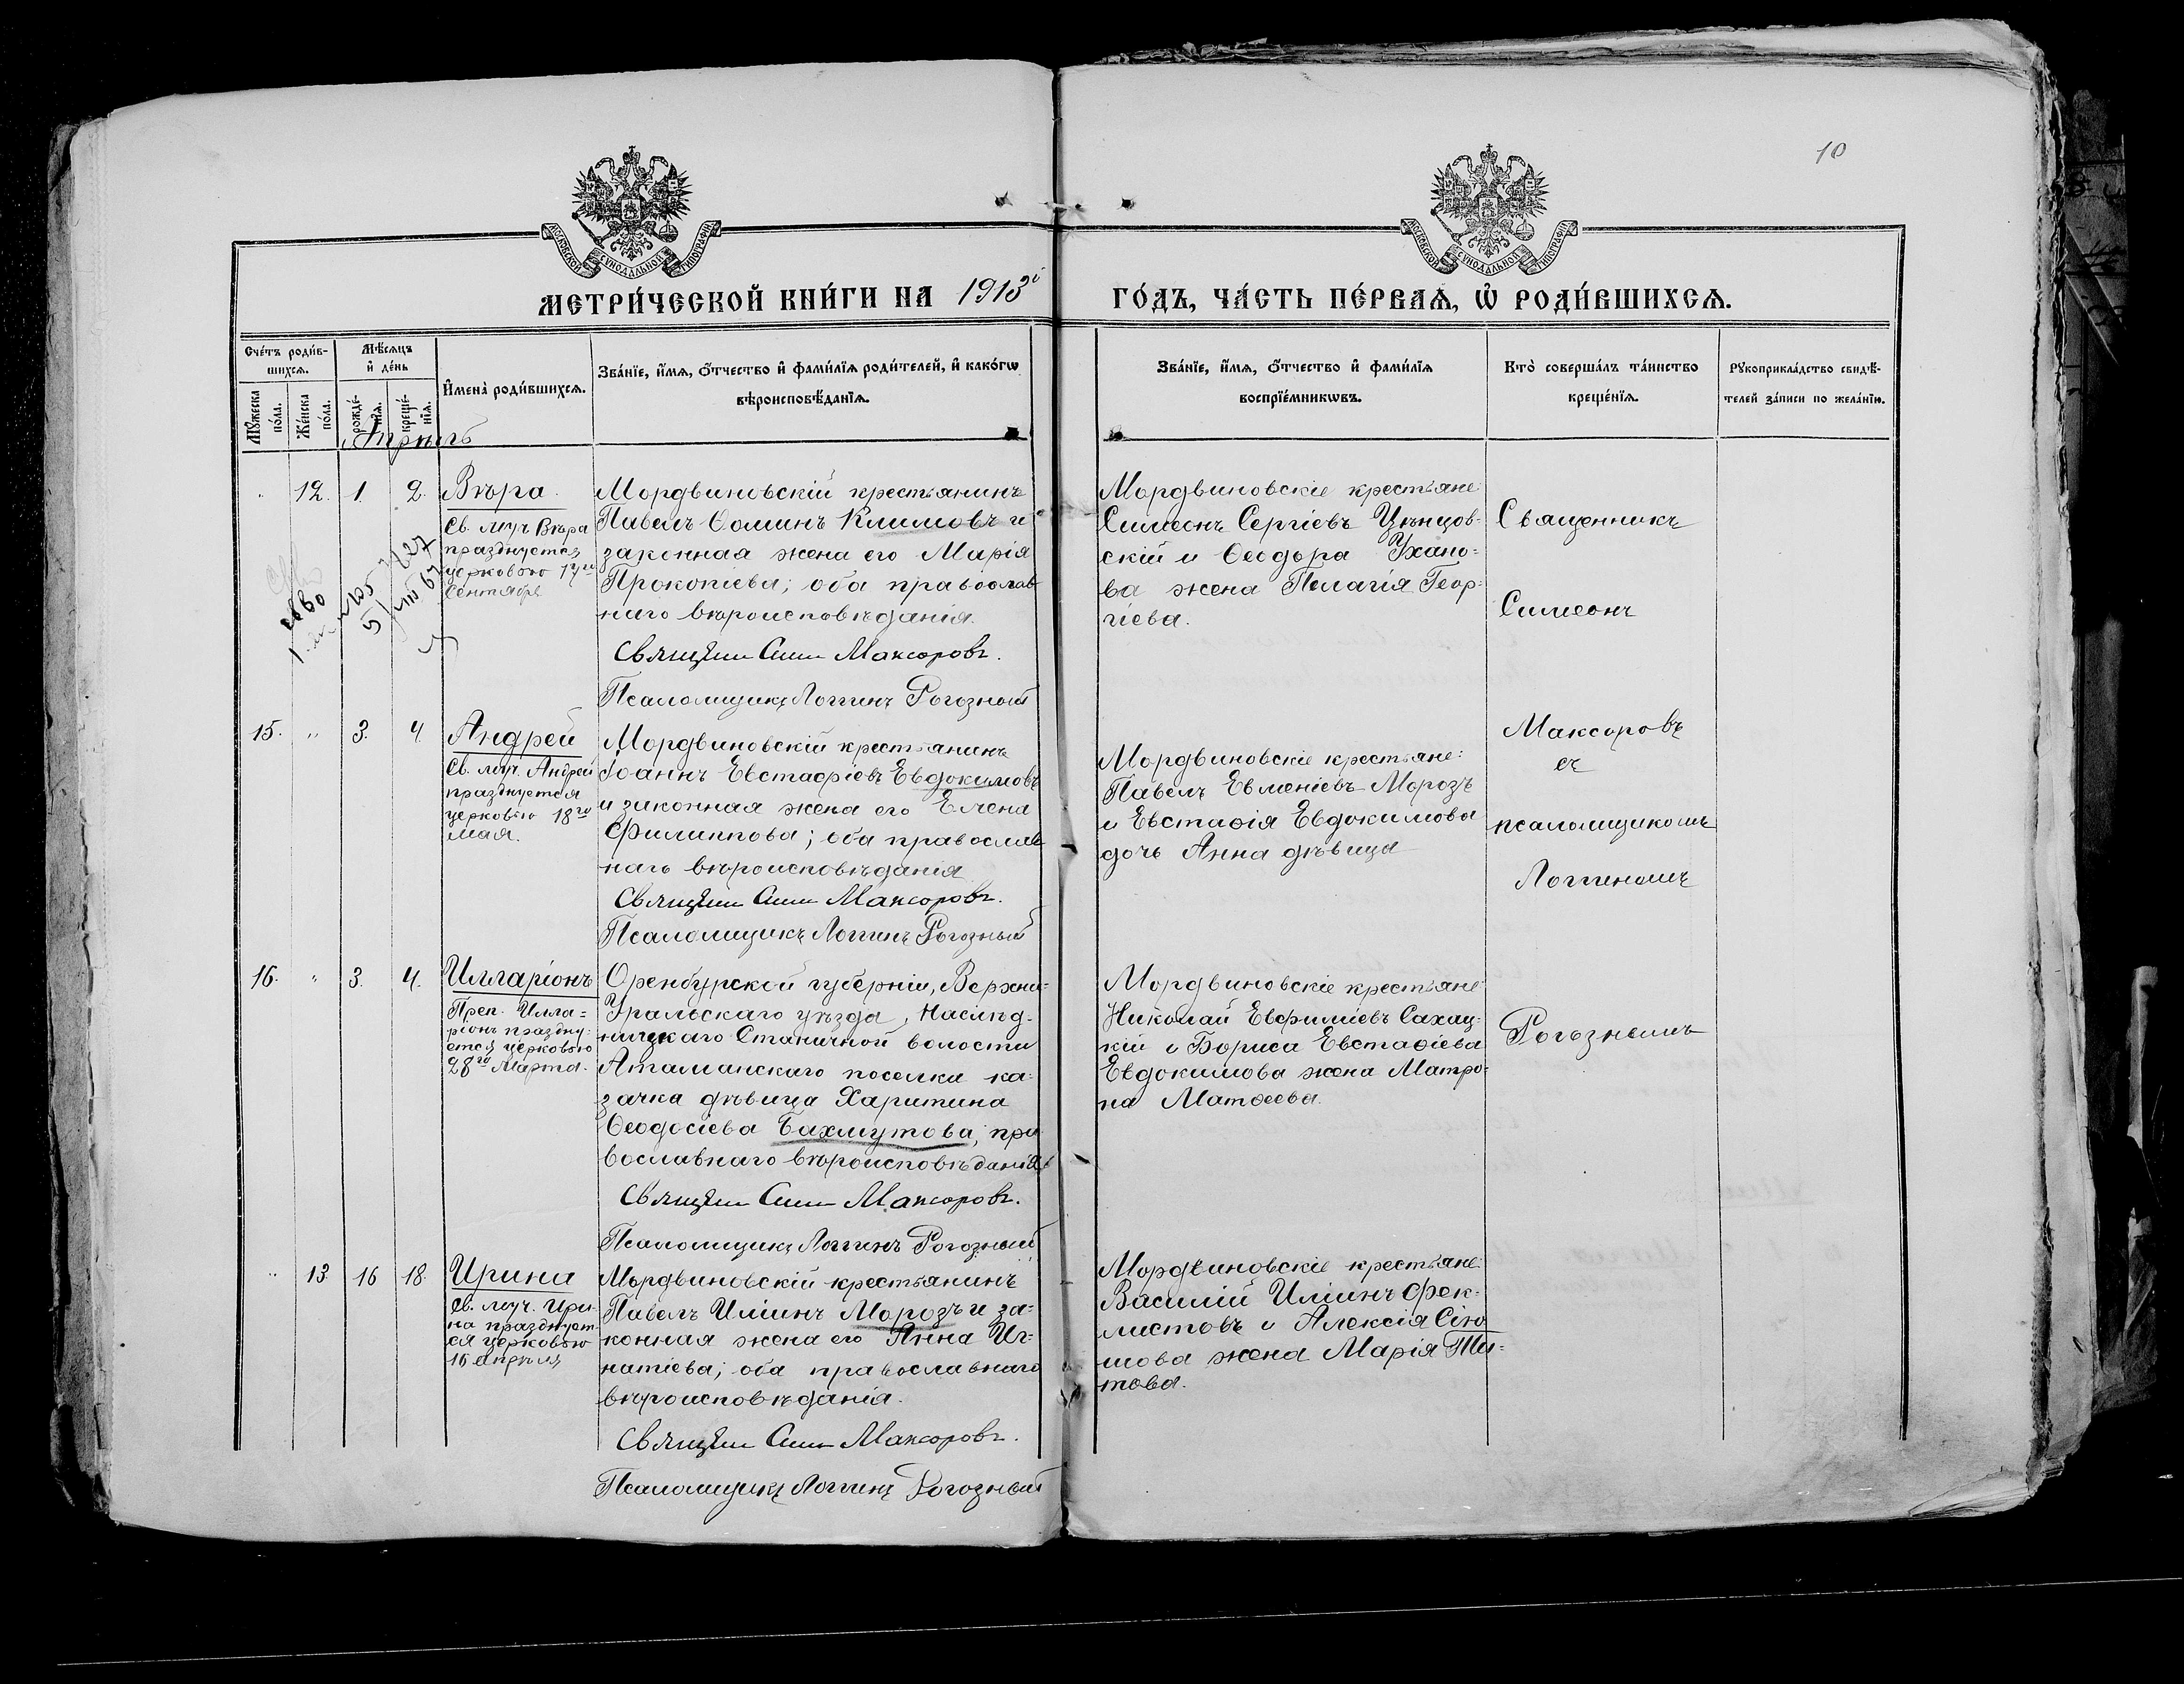 10
МОСКОВСКОЙ СѴНОДАЛЬНОЙ ТИПОГРАФІИ
МОСКОВСКОЙ СѴНОДАЛЬНОЙ ТИПОГРАФІИ
МЕТРИ́ЧЕСКОЙ КНИ́ГИ НА 1913й ГО́ДЪ, ЧА́СТЬ ПЕ́РВАѦ, Ѡ҆ РОДИ́ВШИХСѦ.
Сче́тъ роди́в-
шихсѧ.
Мѣ́сѧцъ
и҆ де́нь
Мꙋ́жеска по́ла.
Же́нска по́ла.
рожде́-нїѧ.
креще́-нїѧ.
И҆мена̀ роди́вшихсѧ.
Зва́нїе, и҆́мѧ, ѻ҆́тчество и҆ фами́лїѧ роди́телей, и҆ како́гѡ
вѣроисповѣ́данїѧ.
Зва́нїе, и҆́мѧ, ѻ҆́тчество и҆ фами́лїѧ
воспрїе́мникѡвъ.
Кто̀ соверша́лъ та́инство
креще́нїѧ.
Рꙋкоприкла́дство свидѣ́-
телей за́писи по жела́нїю.
Апрѣль
" 12. 1. 2. Вѣра.
Св. муч Вѣра
празднуется
церковью 17го
Сентября
Мордвиновскій крестьянинъ
Павелъ Ѳоминъ Климовъ и
законная жена его Марія
Прокопіева; оба православ
наго вѣроисповѣданія.
Священ Сим Максоровъ.
Псаломщикъ Логгинъ Рогозный
Мордвиновскіе крестьяне
Симеонъ Сергіевъ Цѣнцов-
скій и Ѳеодора Ухано-
ва жена Пелагія Геор-
гіева.
Священникъ
Симеонъ
Максоровъ
съ
псаломщикомъ
Логгиномъ
Рогознымъ
15. " 3. 4. Андрей
Св. муч. Андрей
празднуется
церковью 18го
мая.
Мордвиновскій крестьянинъ
Іоаннъ Евстафіевъ Евдокимовъ
и законная жена его Елена
Филиппова; оба православ
наго вѣроисповѣданія
Священ Сим Максоровъ.
Псаломщикъ Логгинъ Рогозный
Мордвиновскіе крестьяне:
Павелъ Евменіевъ Морозъ
и Евстаѳія Евдокимова
дочь Анна дѣвица
16. " 3. 4. Илларіонъ
Преп. Илла-
ріонъ праздну-
ется церковью
28го Марта.
Оренбургской губерніи, Верхне-
Уральскаго уѣзда, Наслѣд-
ницкаго Станичной волости
Атаманскаго поселка ка-
зачка дѣвица Харитина
Ѳеодосіева Бахмутова, пра
вославнаго вѣроисповѣданія
Священ Сим Максоровъ.
Псаломщикъ Логгинъ Рогозный
Мордвиновскіе крестьяне
Николай Евфиміевъ Сахац-
кій и Бориса Евстаѳіева
Евдокимова жена Матро-
на Матѳеева.
" 13. 16 18. Ирина
Св. муч. Ири-
на празднует-
ся церковью
16 апрѣля
Мордвиновскій крестьянинъ
Павелъ Иліинъ Морозъ и за-
конная жена его Анна Иг-
натіева; оба православнаго
вѣроисповѣданія.
Священ Сим Максоровъ.
Псаломщикъ Логгинъ Рогозный
Мордвиновскіе крестьяне
Василій Иліинъ Фек-
листовъ и Алексія Сію
шова жена Марія Ти-
това.